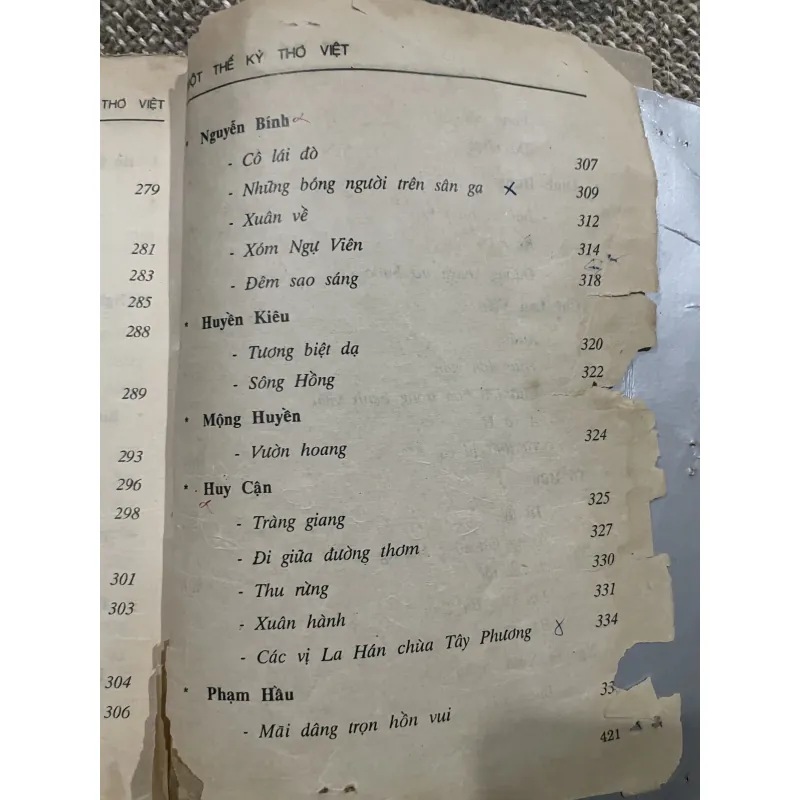 THƠ VIỆT
279
281
283
285
288
289
293
296
298
301
303
304
306
MỘT THẾ KỶ THƠ VIỆT
* Nguyễn Bính
- Cô lái đò 307
- Những bóng người trên sân ga 309
- Xuân về 312
- Xóm Ngự Viên 314
- Đêm sao sáng 318
* Huyền Kiêu
- Tương biệt dạ 320
- Sông Hồng 322
* Mộng Huyền
- Vườn hoang 324
* Huy Cận
- Tràng giang 325
- Đi giữa đường thơm 327
- Thu rừng 330
- Xuân hành 331
- Các vị La Hán chùa Tây Phương 334
* Phạm Hầu
- Mãi dâng trọn hồn vui 33
421